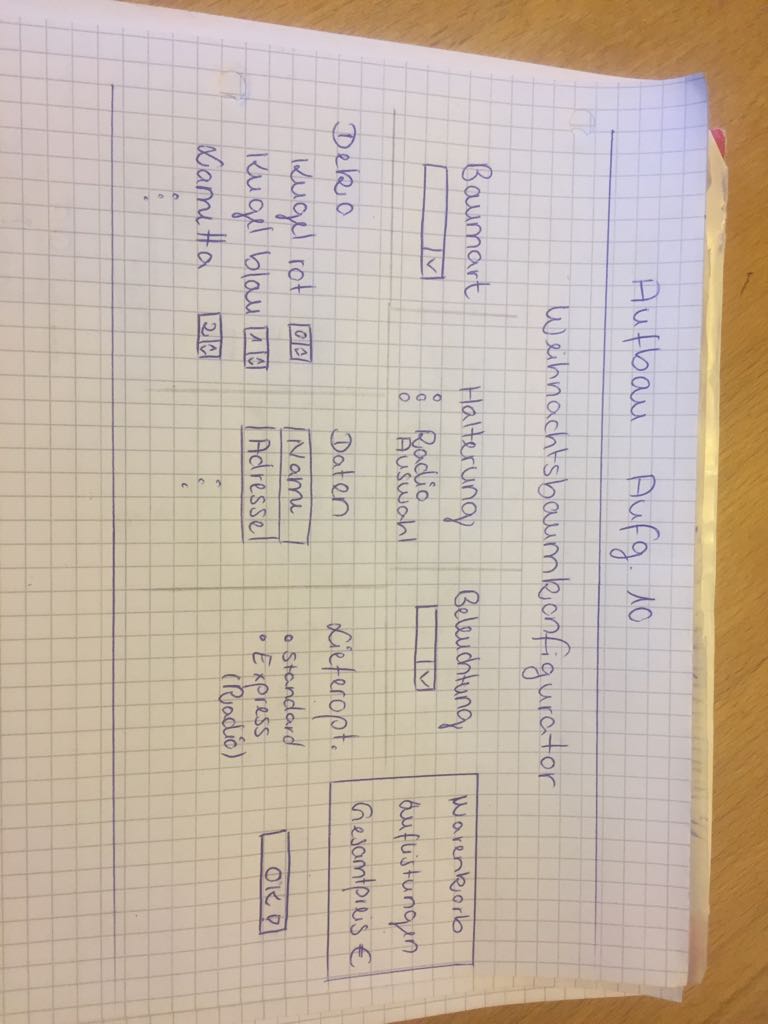 Aufbau Aufg. 10
Weihnachtsbaumkonfigurator
Baumart
Halterung
Radio
Auswahl
Beleuchtung
Warenkorb
Auflistungen
Gesamtpreis €
Deko
Kugel rot 0
Kugel blau 1
Lametta 2
Daten
Name
Adresse
Lieferopt.
Standard
Express
(Radio)
OK